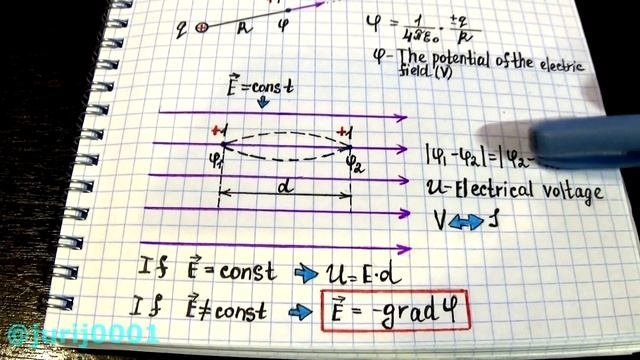 q R φ
φ = 1/4πε₀ · ±q/R
φ - The potential of the electric
field (V)
E⃗ = const
+1 +1
φ₁ φ₂
|φ₁-φ₂|=|φ₂-
d
U - Electrical voltage
V
If E⃗ = const U = E·d
If E⃗ ≠ const E⃗ = -grad φ
@jurij0001